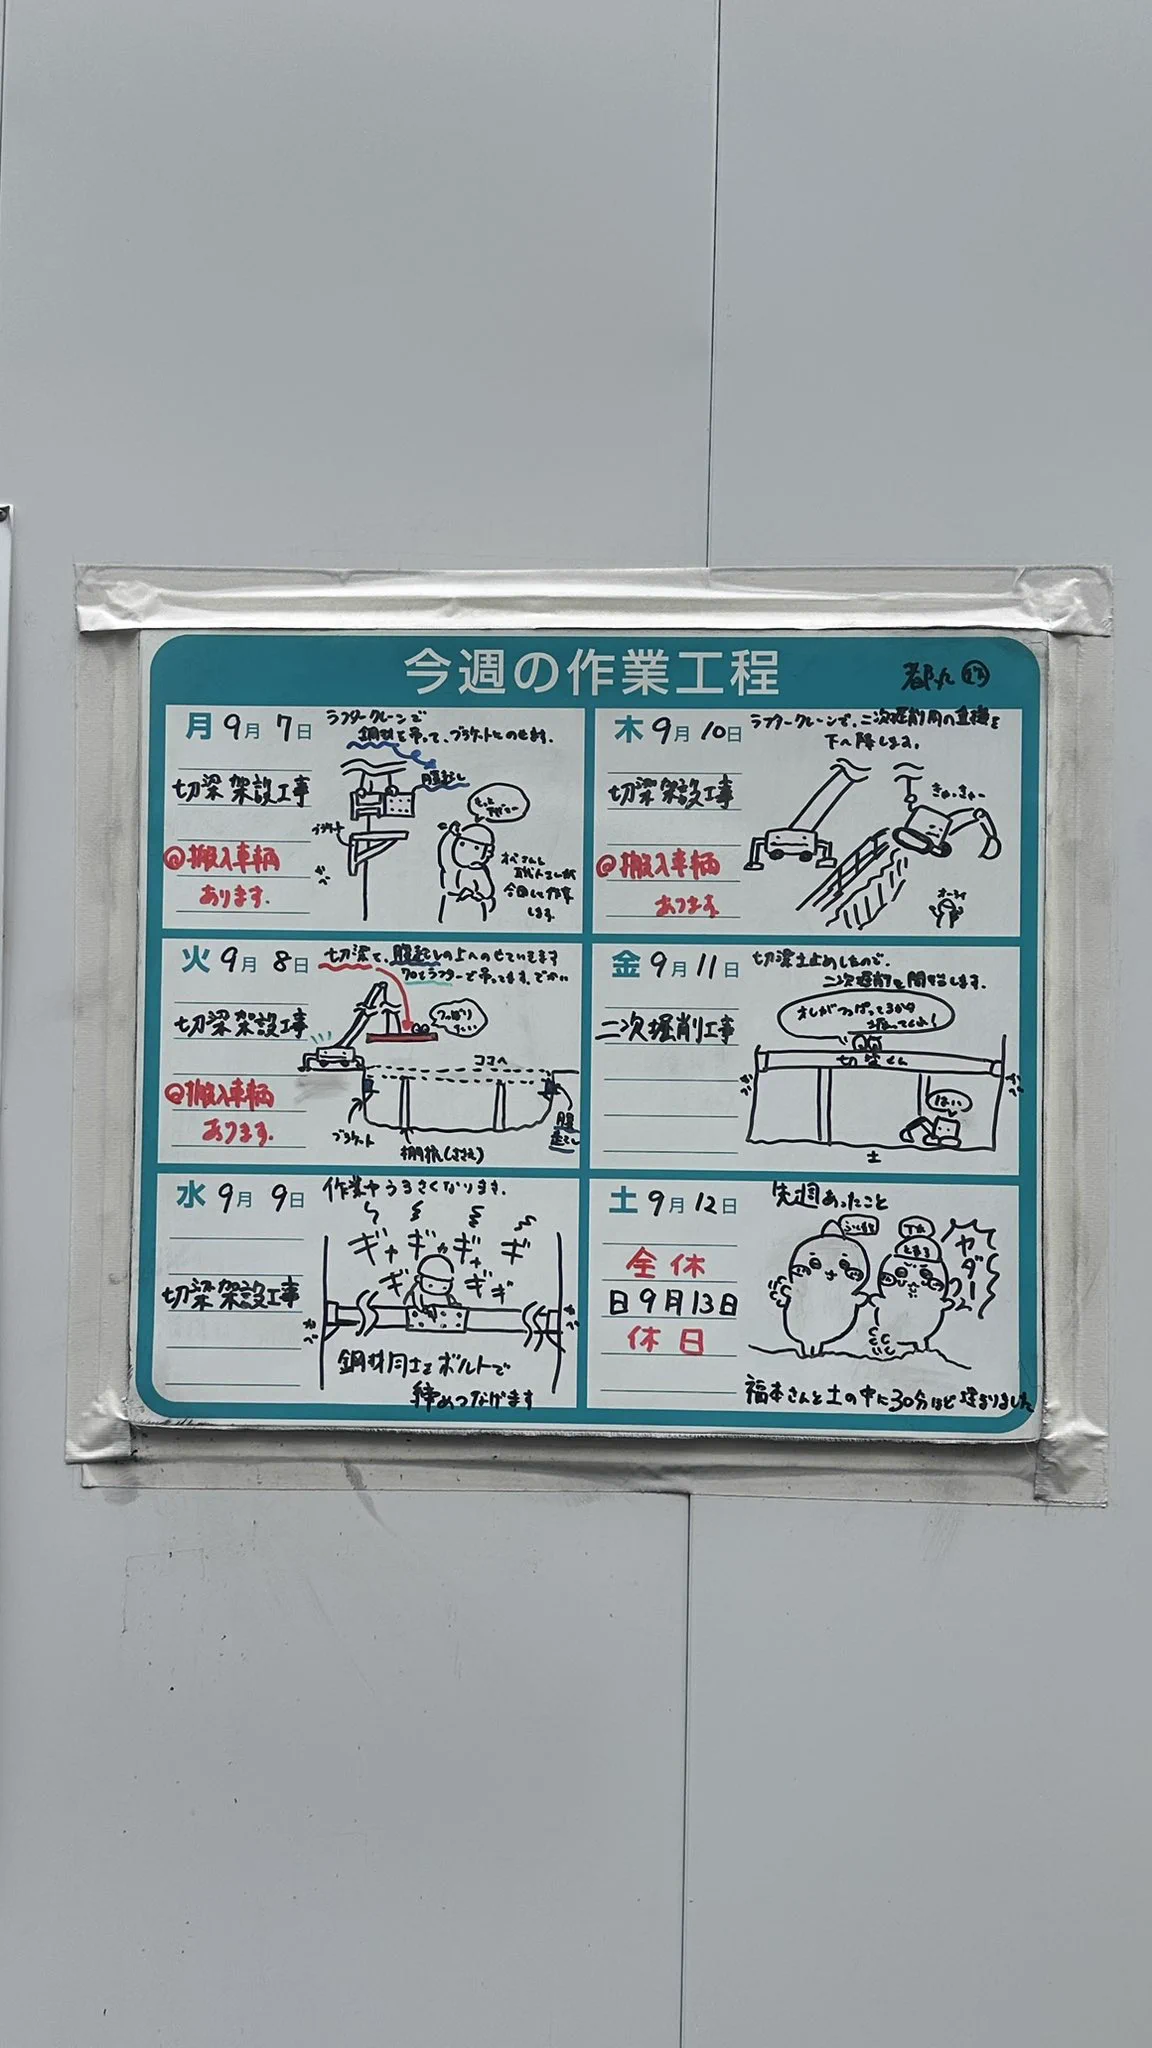 今週の作業工程
月 9月 7日
ラフタークレーンで
鋼材を吊って、ブラケットにのせます。
腹起し
切梁架設工事
ブラケット
もっと
オペさんと
職人さんが
合図して作業
します。
@搬入車輌
あります。
火 9月 8日
切梁を、腹起しの上へのせていきます
70tラフターで吊ってます。でかい
切梁架設工事
つっぱり
ココへ
@搬入車輌
あります。
ブラケット
棚杭(ささえ)
腹起し
水 9月 9日
作業中うるさくなります。
ギャギャギャギ
ギ ギギ
切梁架設工事
かべ
かべ
鋼材同士をボルトで
締めつなげます
木 9月 10日
ラフタークレーンで、二次掘削用の重機を
下へ降します。
切梁架設工事
きゃっきゃー
@搬入車輌
あります
オーライ
金 9月 11日
切梁土止めしたので、
二次掘削を開始します。
二次掘削工事
オレがつっぱってるから
掘ってくれ!
切梁くん
はい
かべ
かべ
土
土 9月 12日
先週あったこと
全休
日9月13日
休日
ヤダーッ
福本さんと土の中に30分ほど埋まりました